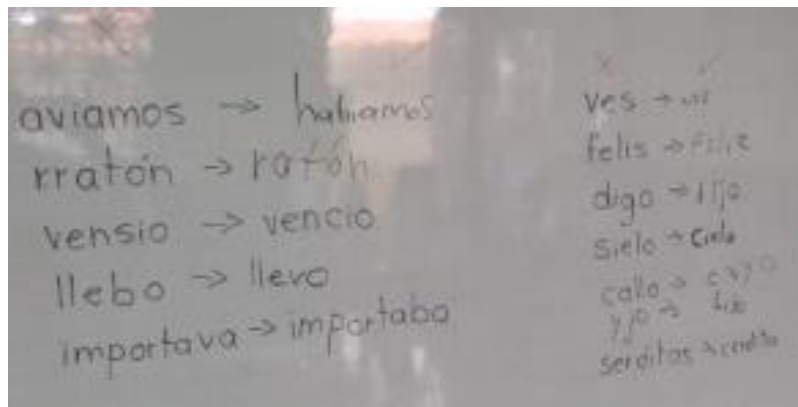 aviamos → habiamos
rratón → ratón
vensio → vencio
llebo → llevo
importava → importaba
X ✓
ves → vez
felis → feliz
digo → dijo
sielo → cielo
callo → cayo
yjo → hijo
serditos → cerdito